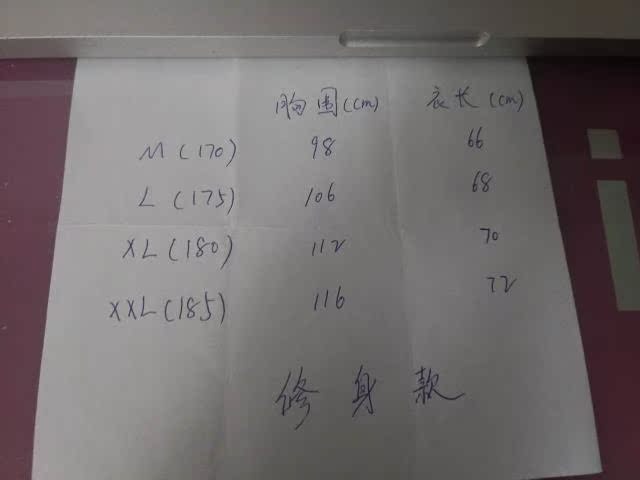 胸围(cm) 衣长(cm)
M(170) 98 66
L(175) 106 68
XL(180) 112 70
XXL(185) 116 72
修身款